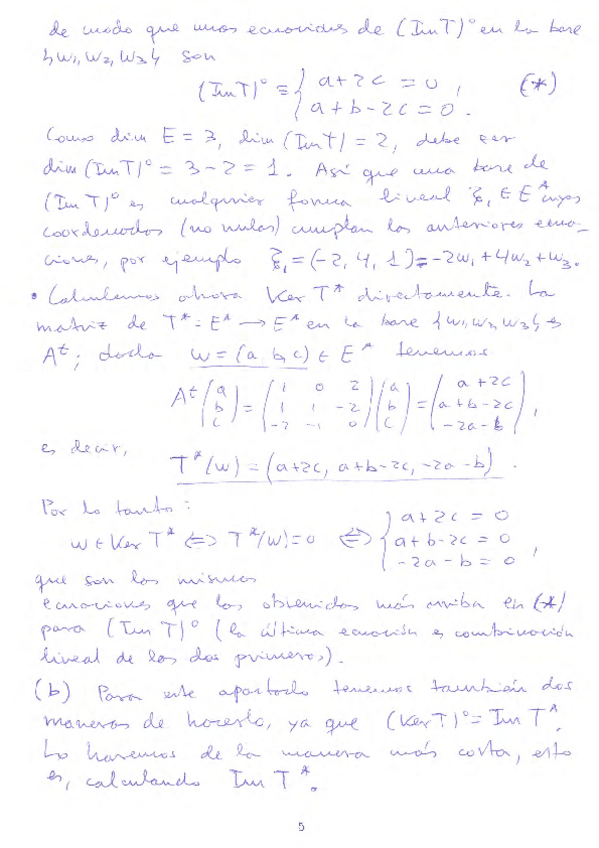 de modo que unas ecuaciones de (Im T)° en la base
{w₁, w₂, w₃} son
(Im T)° ≡ { a + 2c = 0 , a + b - 2c = 0 . (*)
Como dim E = 3, dim (Im T) = 2, debe ser
dim (Im T)° = 3 - 2 = 1. Así que una base de
(Im T)° es cualquier forma lineal ξ₁ ∈ E* cuyas
coordenadas (no nulas) cumplan las anteriores ecua-
ciones, por ejemplo ξ₁ = (-2, 4, 1) = -2w₁ + 4w₂ + w₃.
• Calculemos ahora Ker T* directamente. La
matriz de T* : E* → E* en la base {w₁, w₂, w₃} es
Aᵗ; dada w = (a, b, c) ∈ E* tenemos
Aᵗ (a b c) = (1 0 2 / 1 1 -2 / -2 -1 0) (a b c) = (a + 2c / a + b - 2c / -2a - b) ,
es decir,
T*(w) = (a + 2c, a + b - 2c, -2a - b) .
Por lo tanto:
w ∈ Ker T* ⟺ T*(w) = 0 ⟺ { a + 2c = 0 , a + b - 2c = 0 , -2a - b = 0 ,
que son las mismas
ecuaciones que las obtenidas más arriba en (*)
para (Im T)° (la última ecuación es combinación
lineal de las dos primeras).
(b) Para este apartado tenemos también dos
maneras de hacerlo, ya que (Ker T)° = Im T*.
Lo haremos de la manera más corta, esto
es, calculando Im T*.
5